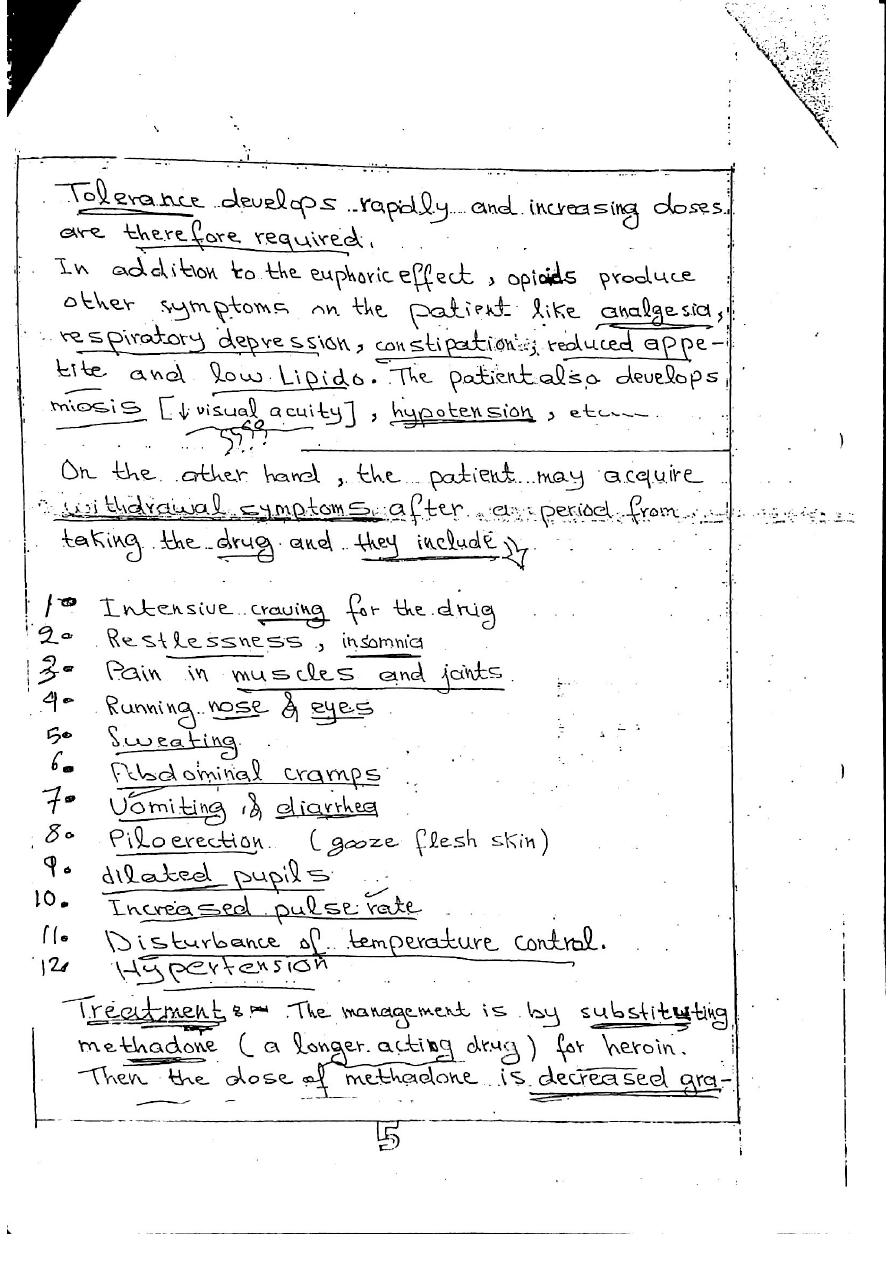 Tolerance develops rapidly and increasing doses
are therefore required.
In addition to the euphoric effect, opioids produce
other symptoms on the patient like analgesia,
respiratory depression, constipation, reduced appe-
tite and low Lipido. The patient also develops
miosis [↓ visual acuity], hypotension, etc----
????
On the other hand, the patient may acquire
withdrawal symptoms after a period from
taking the drug and they include
1- Intensive craving for the drug
2- Restlessness, insomnia
3- Pain in muscles and joints
4- Running nose & eyes
5- Sweating
6- Abdominal cramps
7- Vomiting & diarrhea
8- Piloerection (gooze flesh skin)
9. dilated pupils
10. Increased pulse rate
11. Disturbance of temperature control.
12. Hypertension
Treatment :- The management is by substituting
methadone (a longer acting drug) for heroin.
Then the dose of methadone is decreased gra-
5